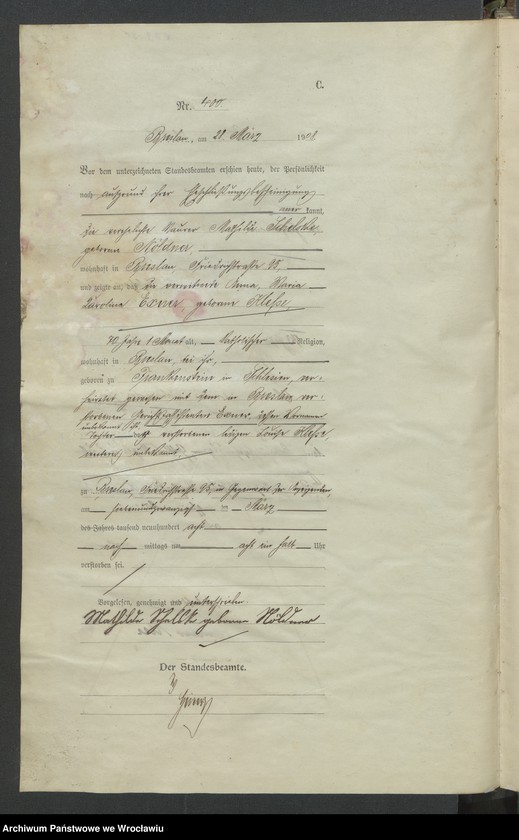 C.
Nr. 400.
Breslau, am 28. März 1908.
Vor dem unterzeichneten Standesbeamten erschien heute, der Persönlichkeit
nach aufgrund ihrer Eheschließungsbescheinigung
aner kannt,
die verehelichte Maurer Mathilde Schelske
geborene Nöldner,
wohnhaft in Breslau, Friedrichstraße 95,
und zeigte an, daß die verwitwete Anna, Maria
Karolina Exner, geborene Klesse
70 Jahre 1 Monat alt, katholischer Religion,
wohnhaft in Breslau, bei ihr,
geboren zu Frankenstein in Schlesien, ver-
heiratet gewesen mit dem in Breslau ver-
storbenen Exner, dessen Vorname
unbekannt ist
Tochter des verstorbenen Klesse
unbekannt
zu Breslau, Friedrichstraße 95, in Gegenwart der Anzeigenden
am siebenundzwanzigsten März
des Jahres tausend neunhundert acht
nach mittags um acht ein halb Uhr
verstorben sei.
Vorgelesen, genehmigt und unterschrieben.
Mathilde Schelske geborene Nöldner
Der Standesbeamte.
Archiwum Państwowe we Wrocławiu